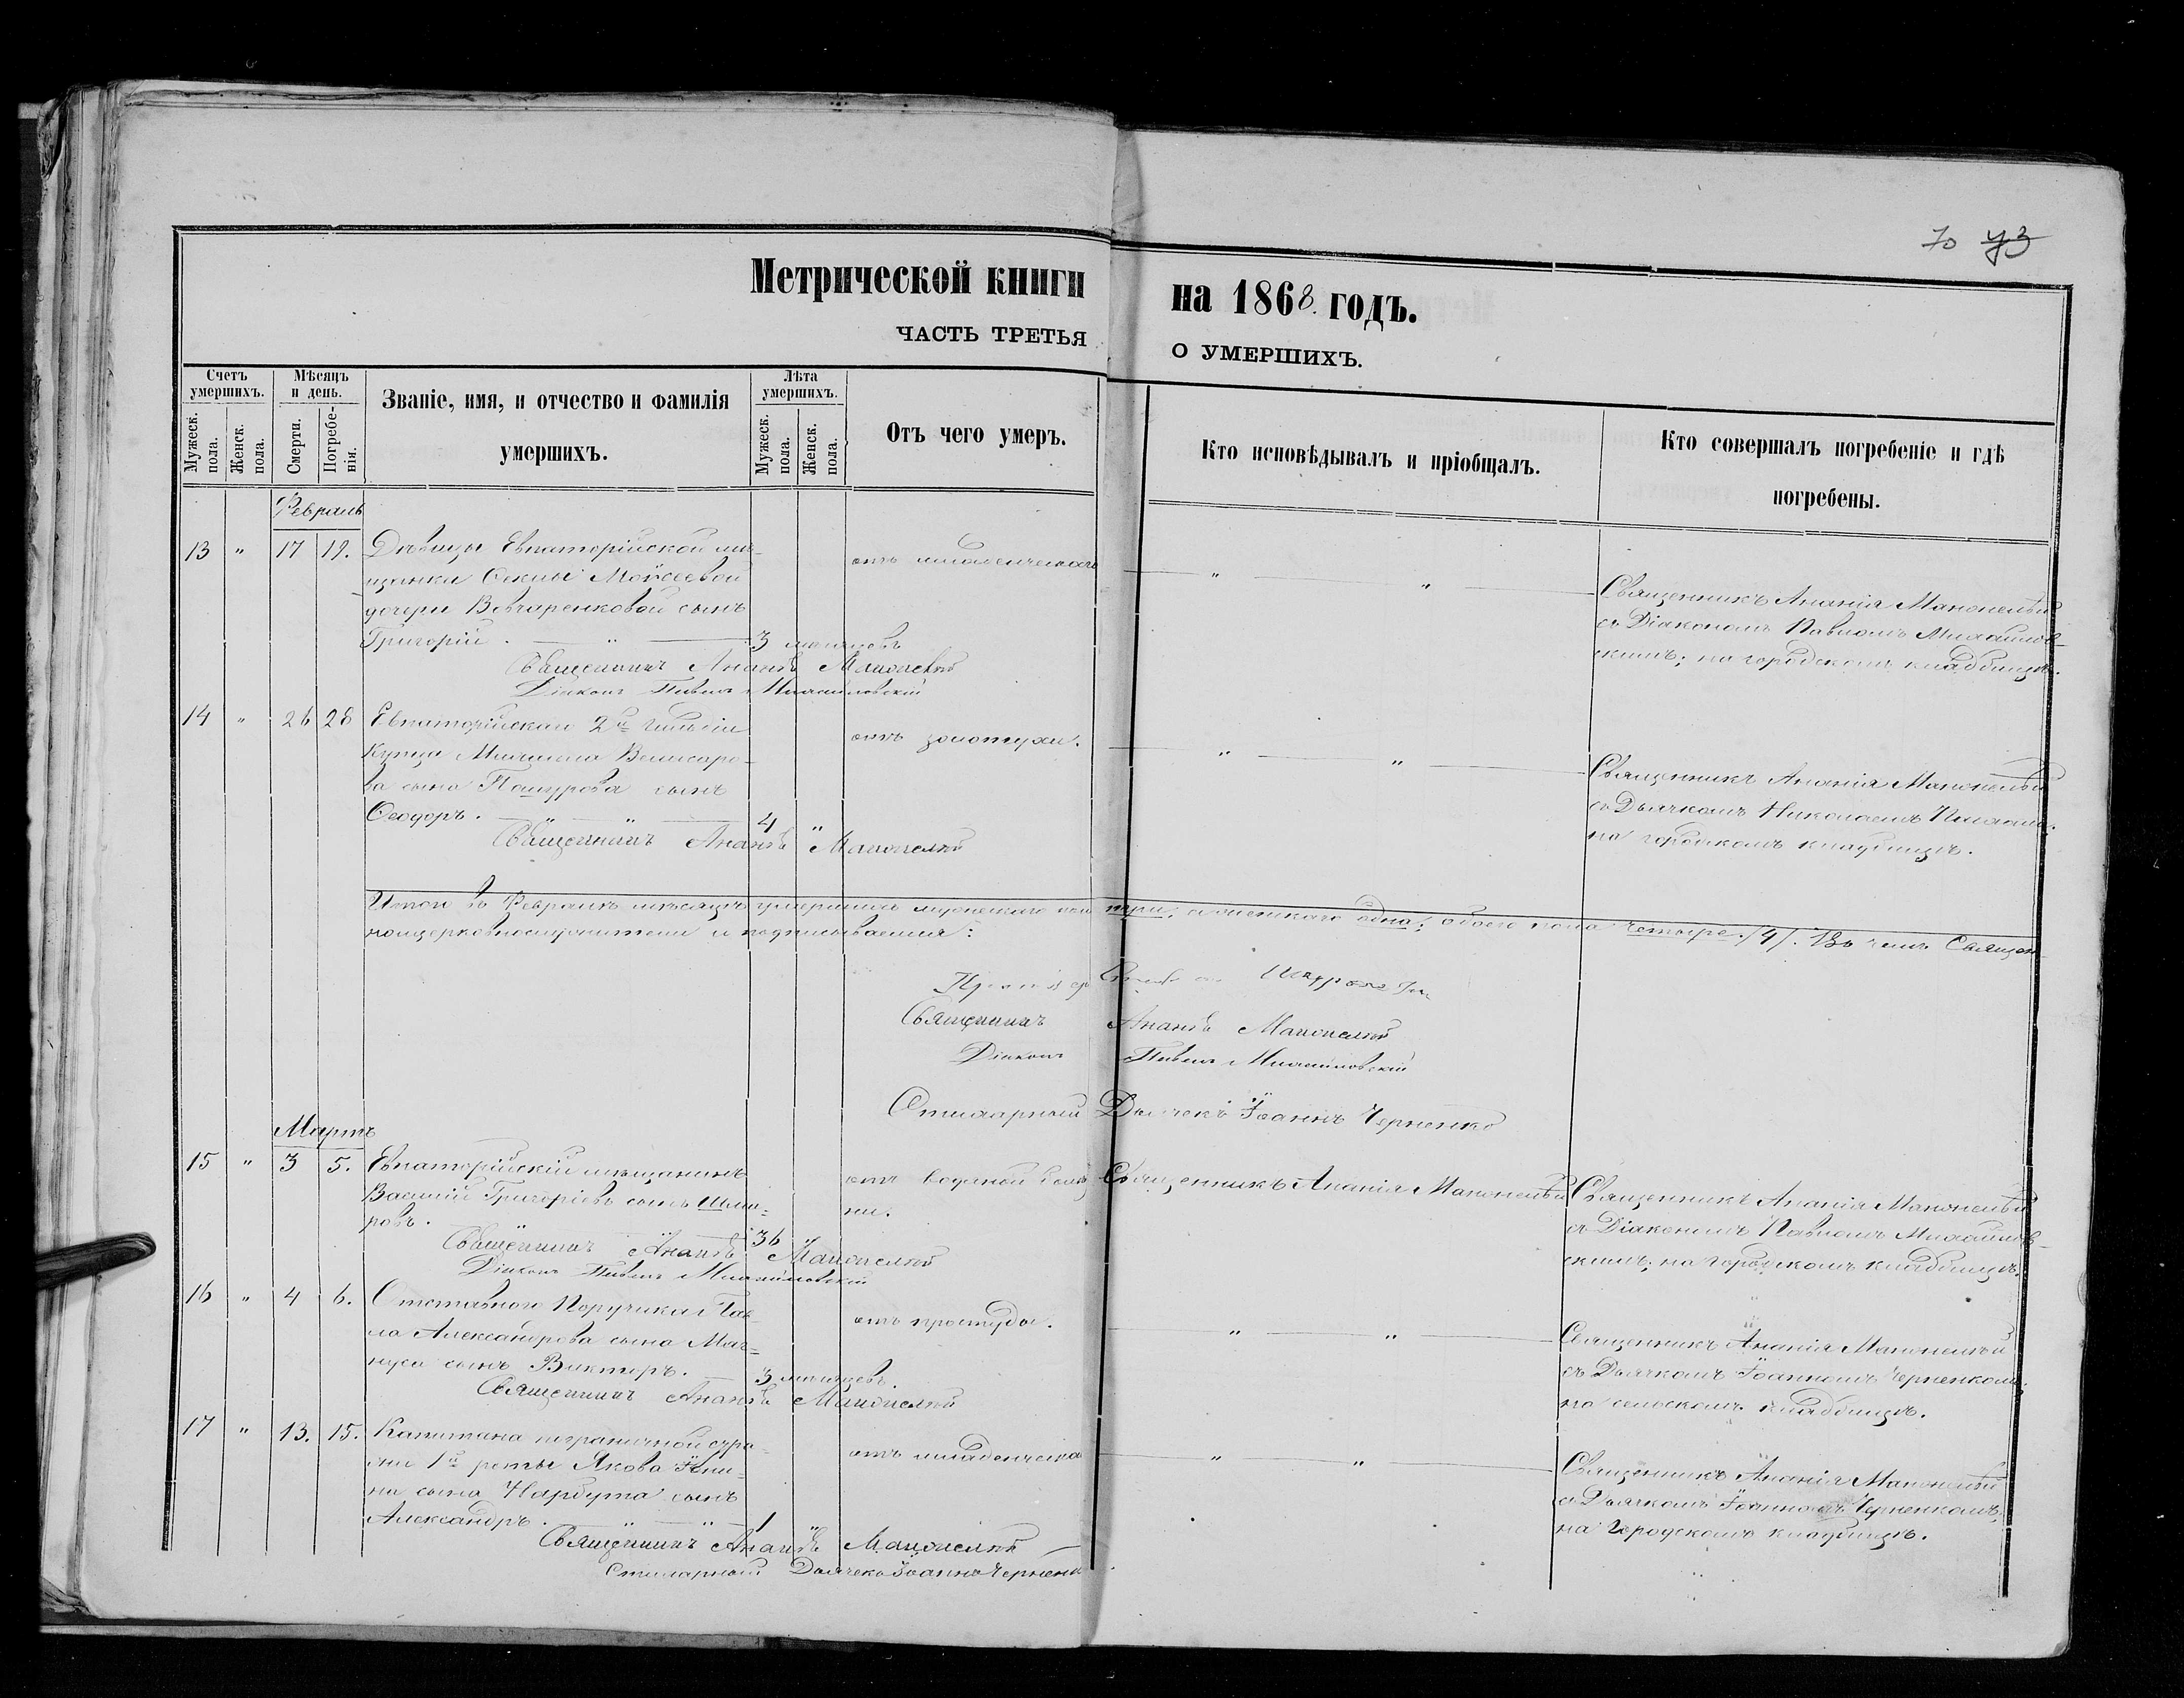 70 73
Метрической книги на 1868. годъ.
ЧАСТЬ ТРЕТЬЯ О УМЕРШИХЪ.
Счетъ умершихъ.
Мужеск. пола.
Женск. пола.
Мѣсяцъ и день.
Смерти.
Погребенія.
Званіе, имя, и отчество и фамилія
умершихъ.
Лѣта умершихъ.
Мужеск. пола.
Женск. пола.
Отъ чего умеръ.
Кто исповѣдывалъ и пріобщалъ.
Кто совершалъ погребеніе и гдѣ
погребены.
Февраль
13 " 17 19. Дѣвицы Евпаторійской мѣ-
щанки Феклы Моисеевой
дочери Вовчаренковой сынъ
Григорій. — " — 3 мѣсяцевъ
отъ младенческаго
" "
Священникъ Ананія Манонелый
съ Діакономъ Павломъ Михайлов-
скимъ; на городскомъ кладбищѣ.
Священникъ Ананія
Діаконъ Павелъ Михайловскій
14 " 26 28 Евпаторійскаго 2й гильдіи
Купца Михаила
ва сына сынъ
Ѳеодоръ. — " — " — 4 "
отъ золотухи.
" "
Священникъ Ананія
съ Дьячкомъ Николаемъ
на городскомъ кладбищѣ.
Священникъ Ананія
Итого въ Февралѣ мѣсяцѣ умершихъ мужескаго пола три; женскаго одна; обоего пола четыре. /4/. Въ чемъ Священ-
ноцерковнослужители и подписываемся:
Священникъ Ананія
Діаконъ Павелъ Михайловскій
Дьячекъ Іоаннъ Черненко
Мартъ
15 " 3 5. Евпаторійскій мѣщанинъ
Василій Григорьевъ сынъ
ровъ. — " — 36 "
отъ водяной болѣз-
ни.
Священникъ Ананія
Священникъ Ананія
съ Діакономъ Павломъ Михайлов-
скимъ; на городскомъ кладбищѣ.
Священникъ Ананія
Діаконъ Павелъ Михайловскій
16 " 4 6. Отставнаго Поручика Пав-
ла Александрова сына Маг-
нуса сынъ Викторъ. — 3 мѣсяцевъ.
отъ простуды.
" "
Священникъ Ананія
съ Дьячкомъ Іоанномъ Черненкомъ;
на сельскомъ кладбищѣ.
Священникъ Ананія
17 " 13. 15. Капитана пограничной стра-
жи 1й роты Якова
на сына Нарбута сынъ
Александръ. — " — " — 1 "
отъ младенческа
" "
Священникъ Ананія
съ Дьячкомъ Іоанномъ Черненкомъ;
на городскомъ кладбищѣ.
Священникъ Ананія
Дьячекъ Іоаннъ Черненко